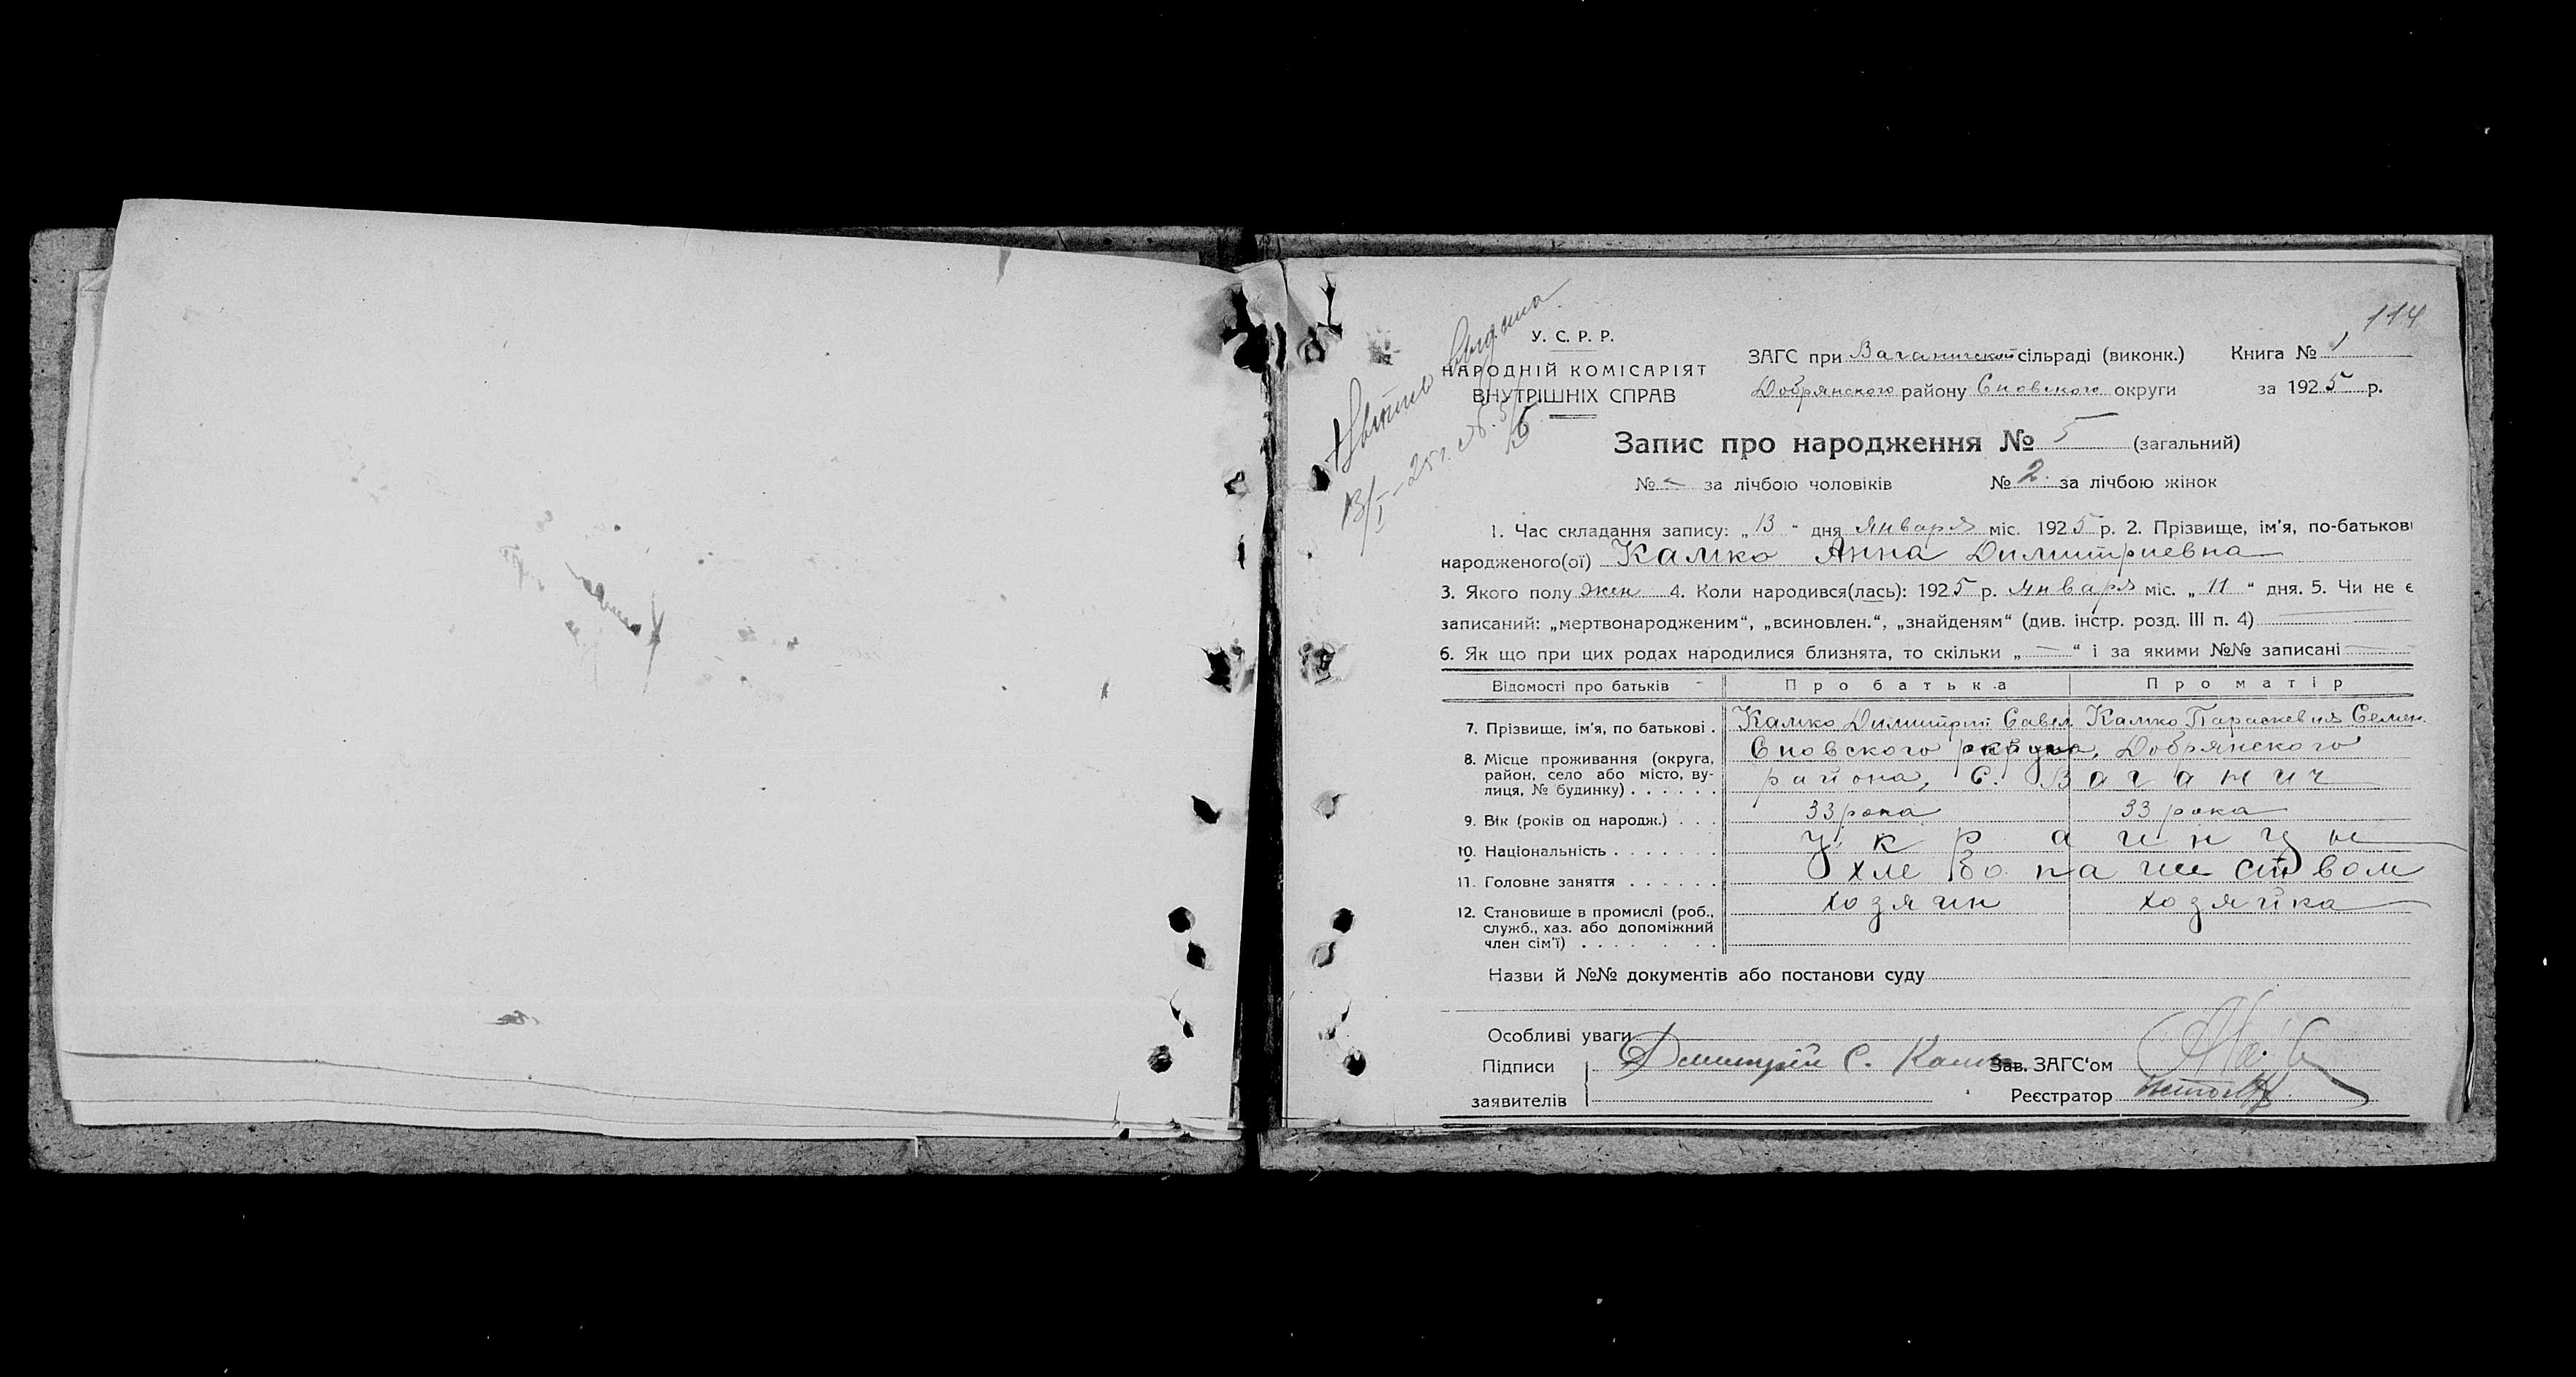 114
У. С. Р. Р.
НАРОДНІЙ КОМІСАРІЯТ
ВНУТРІШНІХ СПРАВ
ЗАГС при Ваганичской сільраді (виконк.) Книга № 1
Добрянского району Сновского округи за 1925 р.
13/I-25 г. №
Запис про народження № 5 (загальний)
№ - за лічбою чоловіків № 2. за лічбою жінок
1. Час складання запису: „13“ дня Января міс. 1925 р. 2. Прізвище, ім'я, по-батькові
народженого(ої) Камко Анна Димитриевна
3. Якого полу жен 4. Коли народився(лась): 1925 р. Января міс. „11“ дня. 5. Чи не є
записаний: „мертвонародженим“, „всиновлен.“, „знайденям“ (див. інстр. розд. III п. 4)
6. Як що при цих родах народилися близнята, то скільки „—“ і за якими №№ записані —
Відомості про батьків Про батька Про матір
7. Прізвище, ім'я, по батькові . Камко Димитрий Савел. Камко Параскевия Семен.
8. Місце проживання (округа, Сновского округа, Добрянского
район, село або місто, ву- района, С. Ваганич
лиця, № будинку) . . . . . .
9. Вік (років од народж.) . . . 33 рока 33 рока
10. Національність . . . . . . . Украинцы
11. Головне заняття . . . . . . хлебопашеством
12. Становище в промислі (роб., хозяин хозяйка
служб., хаз. або допоміжний
член сім'ї) . . . . . . . .
Назви й №№ документів або постанови суду
Особливі уваги
Підписи Дмитрий С. Камко Зав. ЗАГС'ом
заявителів Реєстратор